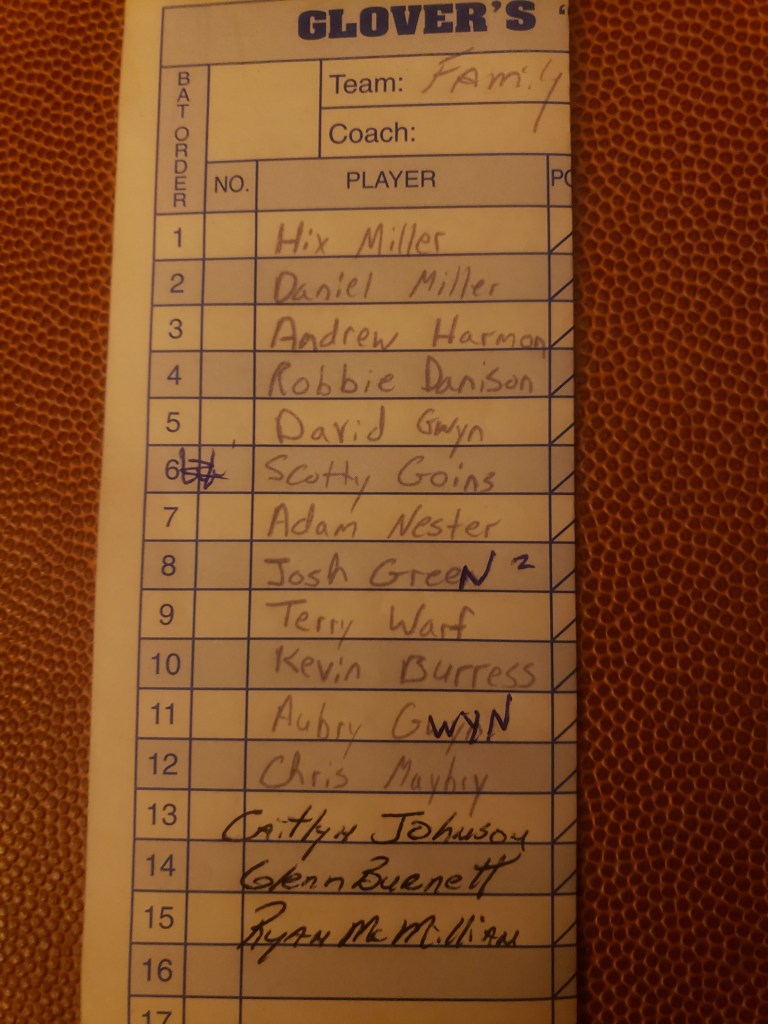 GLOVER'S
BAT ORDER
Team: Family
Coach:
NO. PLAYER PO
1 Hix Miller
2 Daniel Miller
3 Andrew Harmon
4 Robbie Danison
5 David Gwyn
6 Scotty Goins
7 Adam Nester
8 Josh GreeN 2
9 Terry Warf
10 Kevin Burress
11 Aubry GWYN
12 Chris Maybry
13 Caitlyn Johnson
14 Glenn Burnett
15 Ryan McMillian
16
17